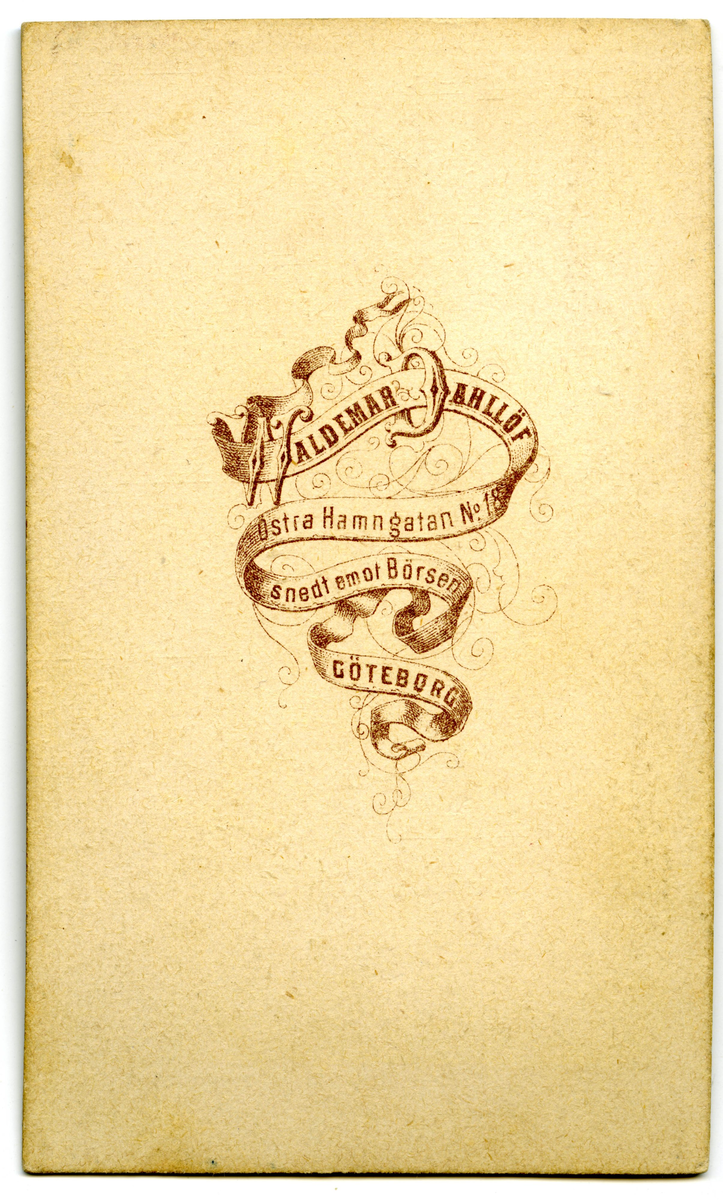 WALDEMAR DAHLLÖF
Östra Hamngatan No 18
snedt emot Börsen
GÖTEBORG